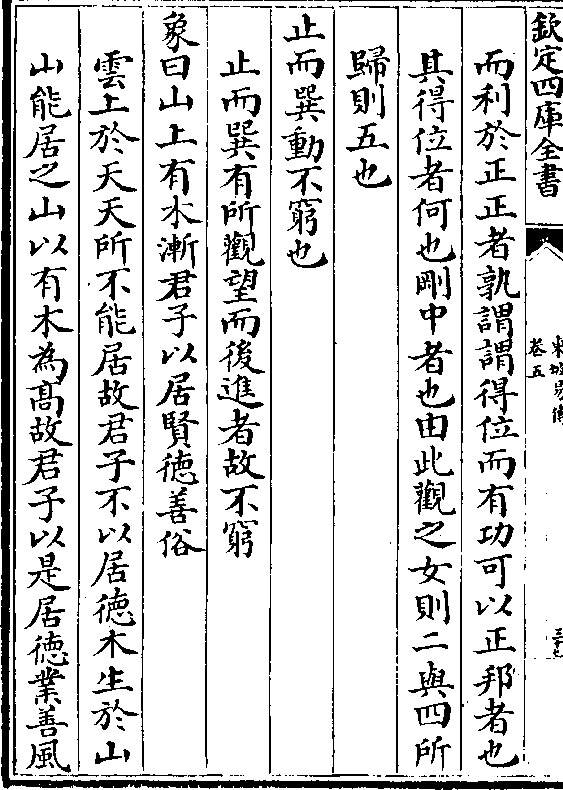 欽定四庫全書
東坡易傳
卷五
三十七
而利於正正者孰謂謂得位而有功可以正邦者也
其得位者何也剛中者也由此觀之女則二與四所
歸則五也
止而巽動不窮也
止而巽有所觀望而後進者故不窮
象曰山上有木漸君子以居賢徳善俗
雲上於天天所不能居故君子不以居徳木生於山
山能居之山以有木為髙故君子以是居徳業善風